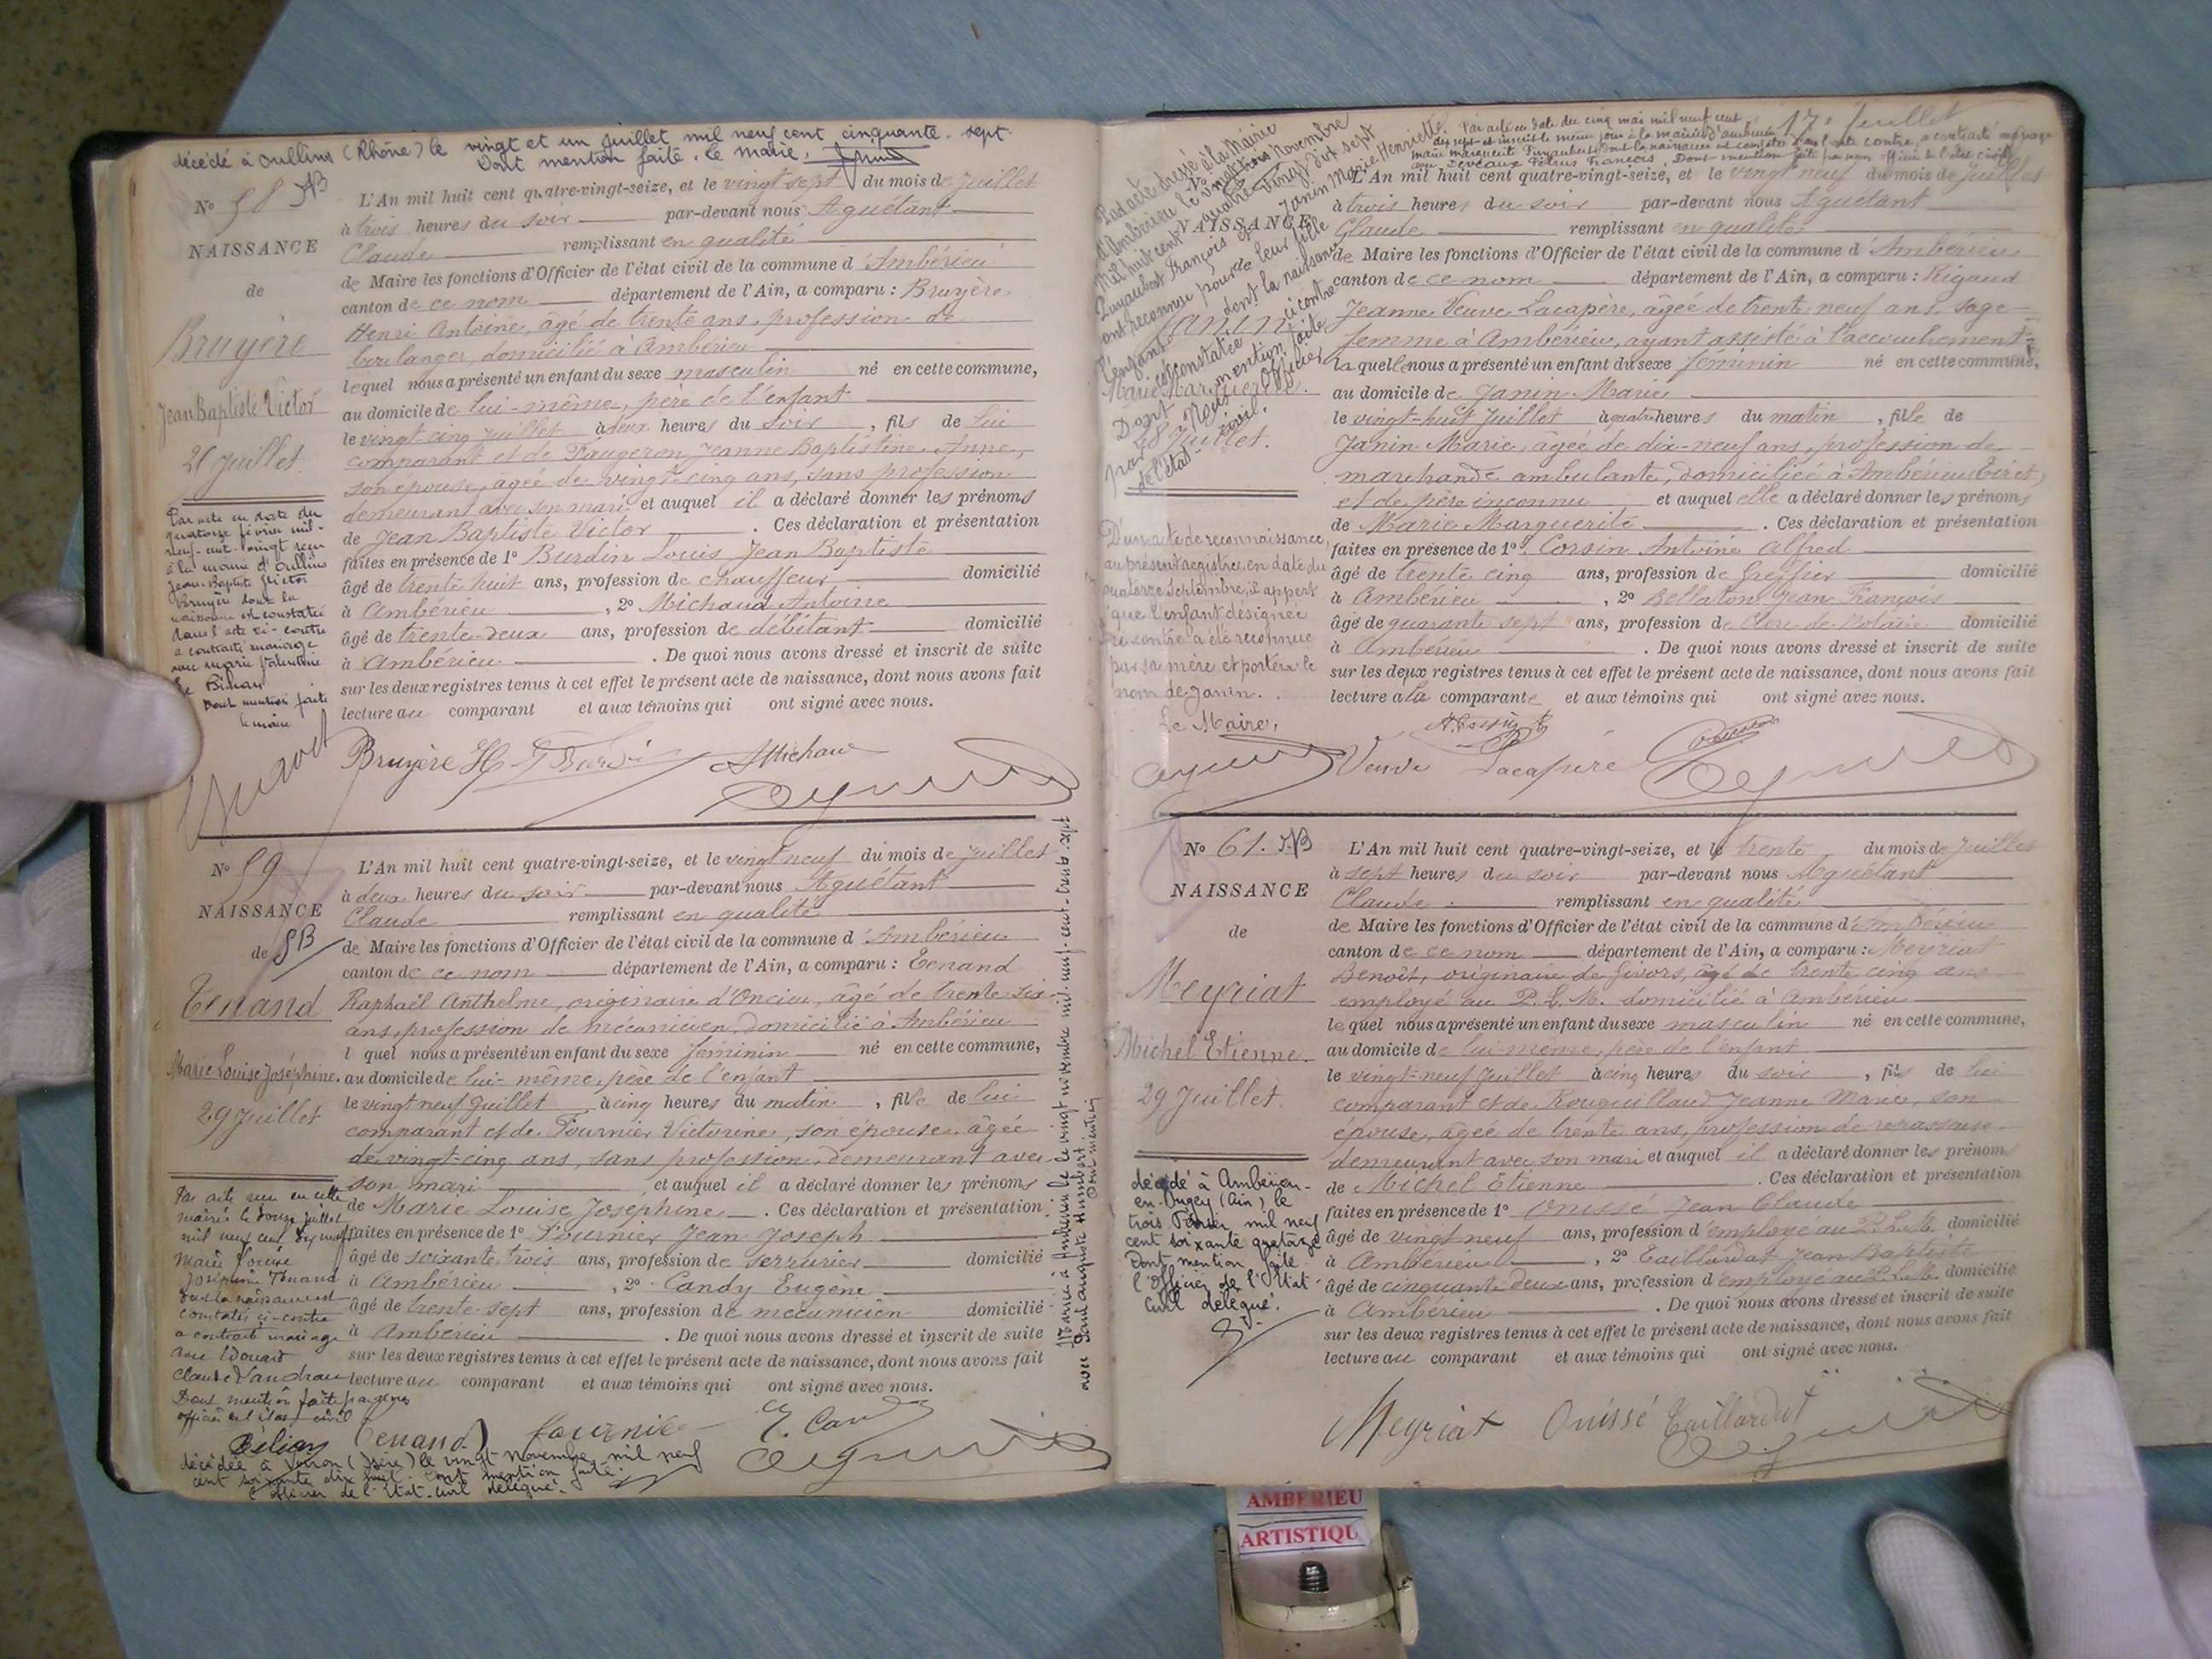 décédé à Oullins (Rhône) le vingt et un juillet mil neuf cent cinquante-sept
Dont mention faite. Le Maire,
N° 58
NAISSANCE
de
Bruyère
Jean Baptiste Victor
Par acte en date du
quatorze février mil-
à la mairie d'Oullins
Jean-Baptiste Victor
Bruyère dont la
naissance est constatée
dans l'acte ci-contre
a contracté mariage
Dont mention faite
le maire
L'An mil huit cent quatre-vingt-seize, et le vingt sept du mois de Juillet
à trois heures du soir par-devant nous Aguétant
Claude remplissant en qualité
de Maire les fonctions d'Officier de l'état civil de la commune d'Ambérieu
canton de ce nom département de l'Ain, a comparu : Bruyère
Henri Antoine, âgé de trente ans, profession de
boulanger, domicilié à Ambérieu
lequel nous a présenté un enfant du sexe masculin né en cette commune,
au domicile de lui-même, père de l'enfant
le vingt-cinq Juillet à deux heures du soir, fils de lui
comparant et de Faugeron Jeanne Baptistine Anne,
son épouse, agée de vingt-cinq ans, sans profession
demeurant avec son mari et auquel il a déclaré donner les prénoms
de Jean Baptiste Victor. Ces déclaration et présentation
faites en présence de 1° Burdin Louis Jean Baptiste
âgé de trente huit ans, profession de chauffeur domicilié
à Ambérieu, 2° Michaud Antoine
âgé de trente-deux ans, profession de débitant domicilié
à Ambérieu. De quoi nous avons dressé et inscrit de suite
sur les deux registres tenus à cet effet le présent acte de naissance, dont nous avons fait
lecture au comparant et aux témoins qui ont signé avec nous.
Bruyère H Michau
N° 59
NAISSANCE
de
Tenand
Marie Louise Joséphine.
29 Juillet
mairie le douze juillet
Marie Louise
Joséphine Tenand
dont la naissance est
constatée ci-contre
a contracté mariage
avec Edouard
Dont mention faite par nous
officier de l'état civil
L'An mil huit cent quatre-vingt-seize, et le vingt neuf du mois de Juillet
à deux heures du soir par-devant nous Aguétant
Claude remplissant en qualité
de Maire les fonctions d'Officier de l'état civil de la commune d'Ambérieu
canton de ce nom département de l'Ain, a comparu : Tenand
Raphaël Anthelme, originaire d'Oncieu, âgé de trente-six
ans, profession de mécanicien, domicilié à Ambérieu
l quel nous a présenté un enfant du sexe féminin né en cette commune,
au domicile de lui-même, père de l'enfant
le vingt neuf Juillet à cinq heures du matin, fille de lui
comparant et de Fournier Victorine, son épouse, âgée
de vingt-cinq ans, sans profession, demeurant avec
son mari et auquel il a déclaré donner les prénoms
de Marie Louise Joséphine. Ces déclaration et présentation
faites en présence de 1° Fournier Jean Joseph
âgé de soixante trois ans, profession de serrurier domicilié
à Ambérieu, 2° Candy Eugène
âgé de trente-sept ans, profession de mécanicien domicilié
à Ambérieu. De quoi nous avons dressé et inscrit de suite
sur les deux registres tenus à cet effet le présent acte de naissance, dont nous avons fait
lecture au comparant et aux témoins qui ont signé avec nous.
Tenand Fournier E. Candy
décédée à Voiron (Isère) le vingt novembre mil neuf
cent soixante dix huit. Dont mention faite.
l'officier de l'Etat-civil délégué.
Mariée à Ambérieu le vingt novembre mil-neuf-cent-trente-sept
Dont mention
17 Juillet
Par acte dressé à la Mairie
d'Ambérieu le
mil huit cent quatre vingt dix sept
Janin Marie Henriette
ont reconnu pour leur fille
l'enfant dont la naissance
est constatée ci-contre
Dont mention faite
par Nous Officier
de l'état-civil.
NAISSANCE
JANIN
Marie Marguerite.
28 Juillet.
D'un acte de reconnaissance,
au présent registre, en date du
quatorze Septembre, il appert
que l'enfant désignée
ci-contre a été reconnue
par sa mère et portera le
nom de Janin.
Le Maire,
L'An mil huit cent quatre-vingt-seize, et le vingt neuf du mois de Juillet
à trois heures du soir par-devant nous Aguétant
Claude remplissant en qualité
de Maire les fonctions d'Officier de l'état civil de la commune d'Ambérieu
canton de ce nom département de l'Ain, a comparu : Rigaud
Jeanne Veuve Lacapère, âgée de trente neuf ans, sage-
femme à Ambérieu, ayant assisté à l'accouchement
laquelle nous a présenté un enfant du sexe féminin né en cette commune,
au domicile de Janin Marie
le vingt-huit Juillet à quatre heures du matin, fille de
Janin Marie, âgée de dix-neuf ans, profession de
marchande ambulante, domiciliée à Ambérieu
et de père inconnu et auquel elle a déclaré donner les prénoms
de Marie Marguerite. Ces déclaration et présentation
faites en présence de 1° Corsin Antoine Alfred
âgé de trente cinq ans, profession de Greffier domicilié
à Ambérieu, 2° Bellaton Jean François
âgé de quarante sept ans, profession de Clerc de Notaire domicilié
à Ambérieu. De quoi nous avons dressé et inscrit de suite
sur les deux registres tenus à cet effet le présent acte de naissance, dont nous avons fait
lecture à la comparante et aux témoins qui ont signé avec nous.
Veuve Lacapère
N° 61.
NAISSANCE
de
Meyriat
Michel Etienne.
29 Juillet.
décédé à Ambérieu-
en-Bugey (Ain) le
trois Février mil neuf
cent soixante quatorze
Dont mention faite.
l'Officier de l'Etat-
civil délégué.
L'An mil huit cent quatre-vingt-seize, et le trente du mois de Juillet
à sept heures du soir par-devant nous Aguétant
Claude remplissant en qualité
de Maire les fonctions d'Officier de l'état civil de la commune d'Ambérieu
canton de ce nom département de l'Ain, a comparu : Meyriat
Benoît, originaire de Givors, âgé de trente cinq ans
employé au P.L.M. domicilié à Ambérieu
lequel nous a présenté un enfant du sexe masculin né en cette commune,
au domicile de lui même, père de l'enfant
le vingt-neuf Juillet à cinq heures du soir, fils de lui
comparant et de Rouquillaud Jeanne Marie, son
épouse, âgée de trente ans, profession de repasseuse
demeurant avec son mari et auquel il a déclaré donner les prénoms
de Michel Etienne. Ces déclaration et présentation
faites en présence de 1° Ouissé Jean Claude
âgé de vingt neuf ans, profession d'employé au P.L.M. domicilié
à Ambérieu, 2° Taillardat Jean Baptiste
âgé de cinquante-deux ans, profession d'employé au P.L.M. domicilié
à Ambérieu. De quoi nous avons dressé et inscrit de suite
sur les deux registres tenus à cet effet le présent acte de naissance, dont nous avons fait
lecture au comparant et aux témoins qui ont signé avec nous.
Meyriat Ouissé Taillardat
AMBERIEU
ARTISTIQU